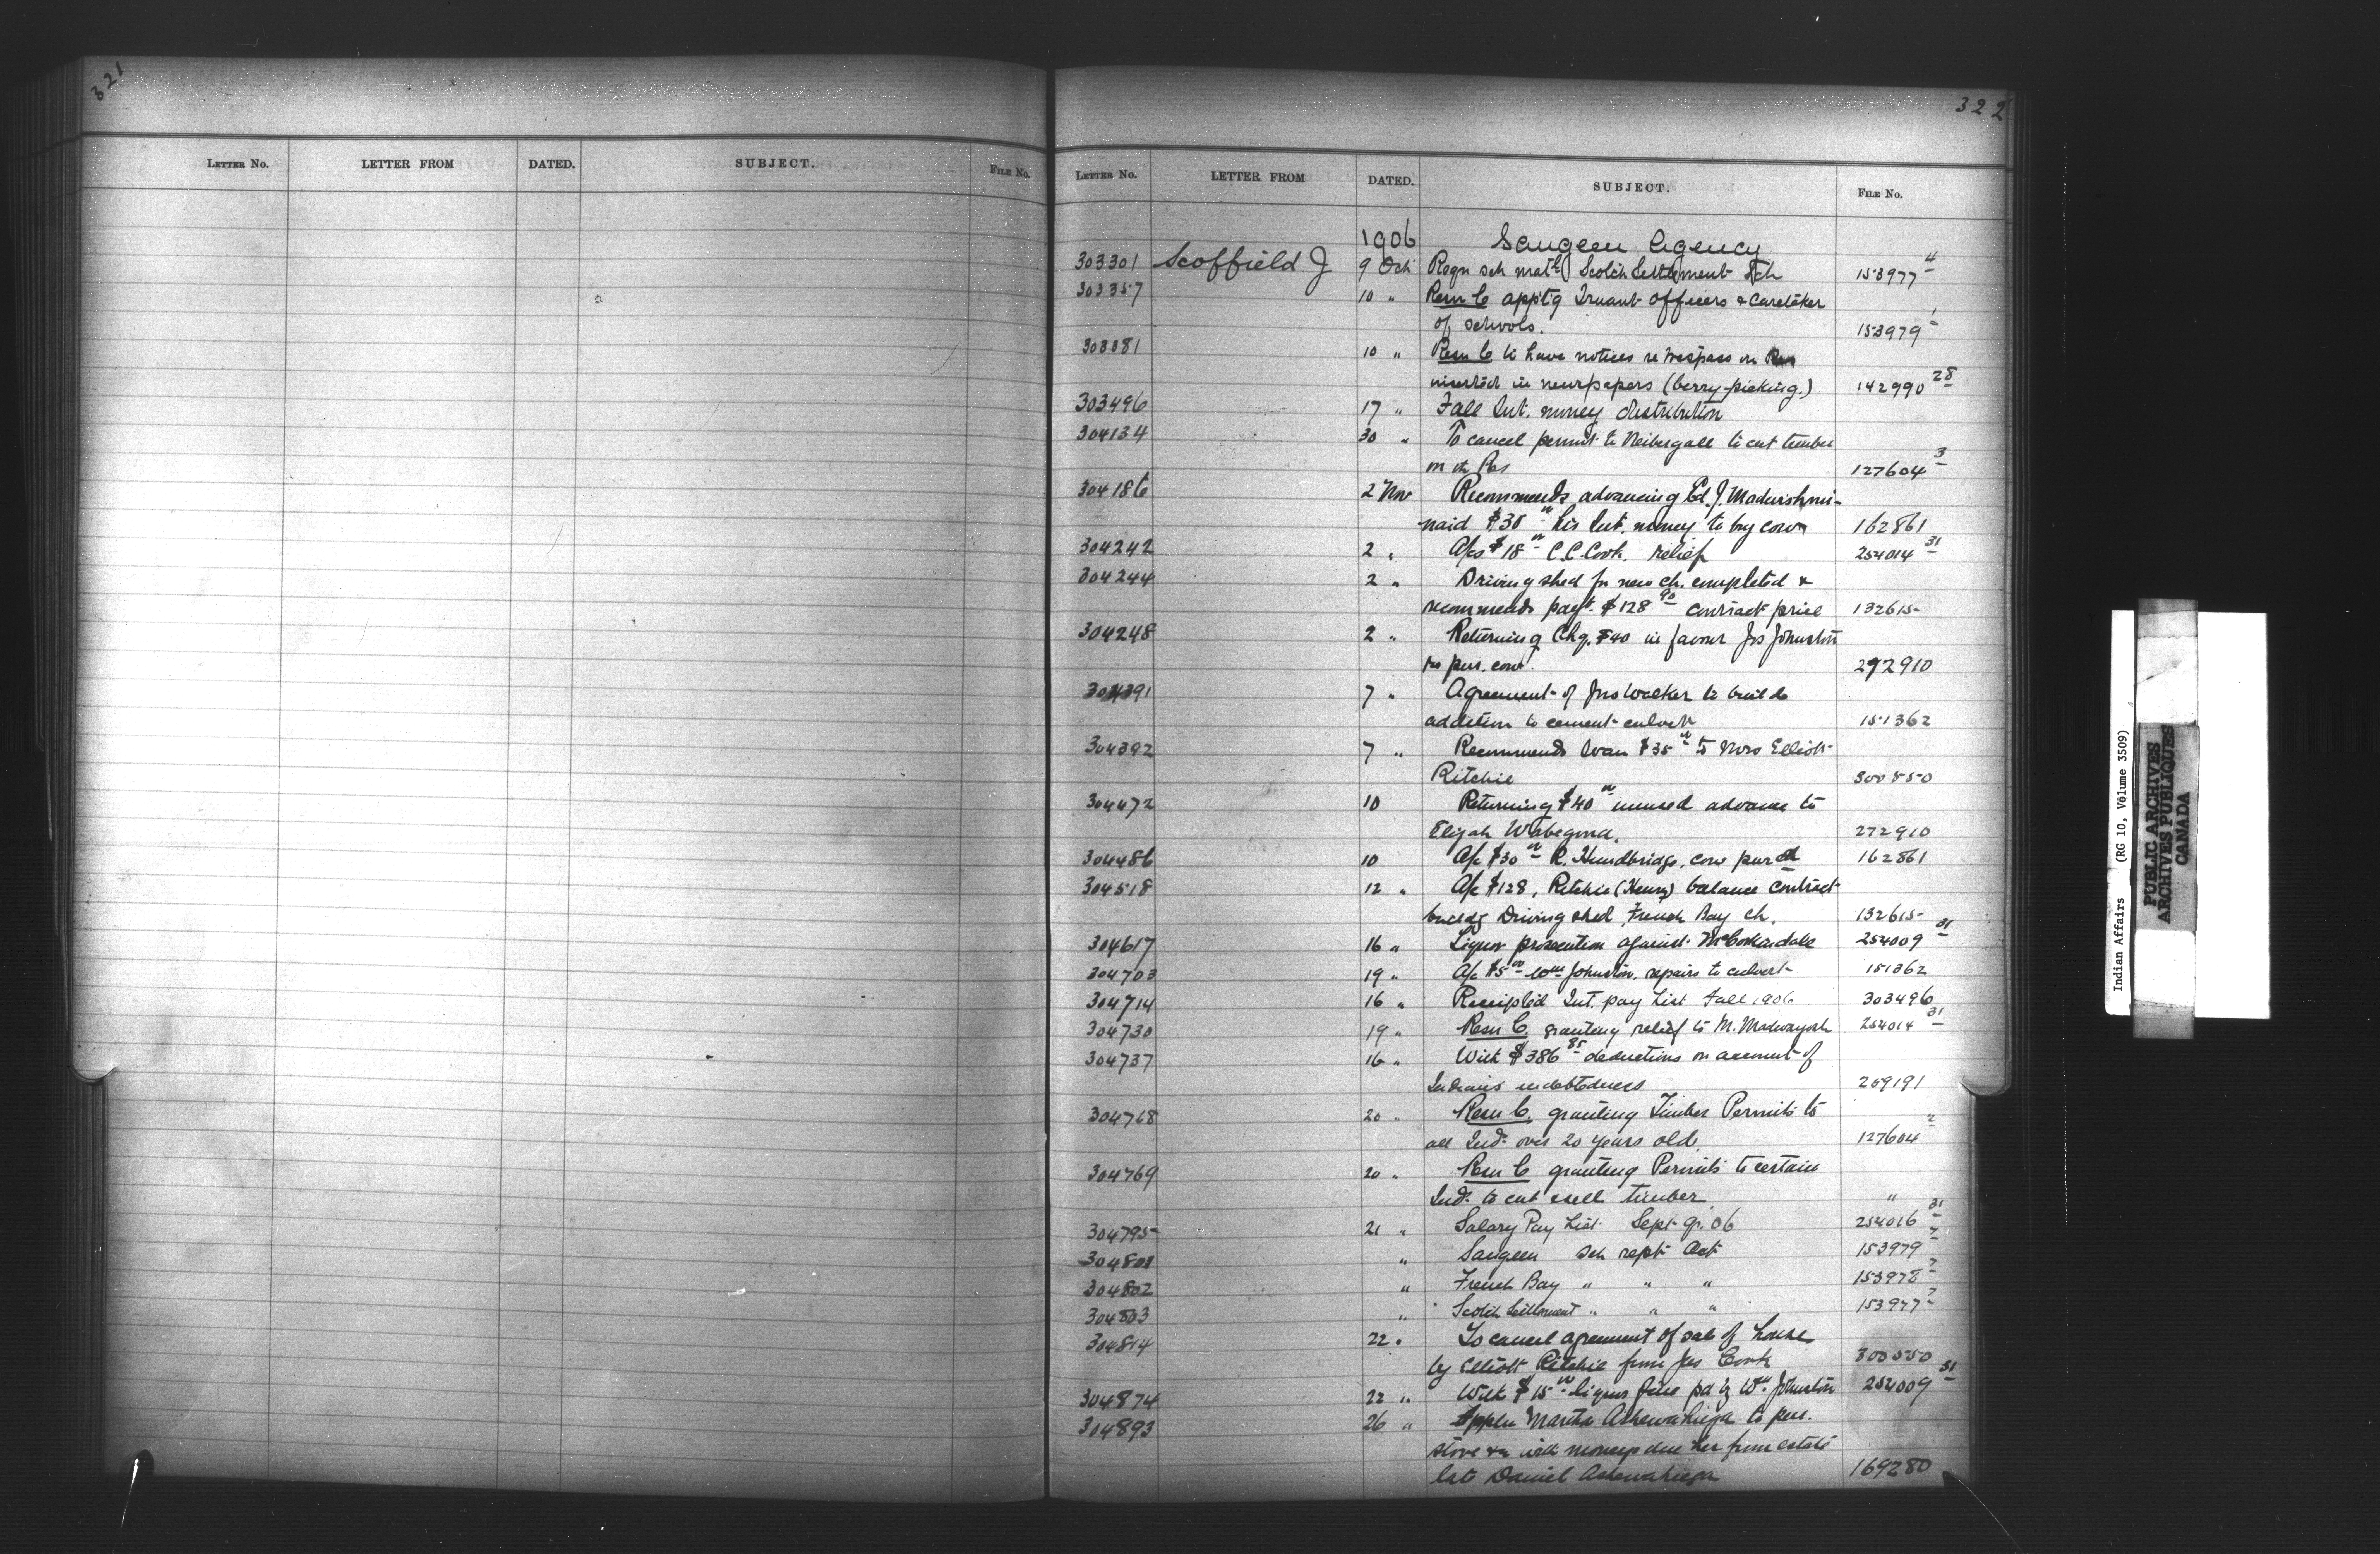 321
LETTER No. LETTER FROM DATED. SUBJECT. FILE No.
322
LETTER No. LETTER FROM DATED. SUBJECT. FILE No.
1906 Saugeen Agency
303301 Scoffield J 9 Oct Reqn sch matl Scotch Settlement Sch 153977 4
303357 10 " Resn C apptg Truant officers & Caretaker
of schools. 153979 1
303381 10 " Resn C to have notices re trespass on Res
inserted in newspapers (berry-picking.) 142990 28
303496 17 " Fall Int. money distribution
304134 30 " To cancel permit to Neibergall to cut timber
on the Res 127604 3
304186 2 Nov Recommends advancing Ed. J. Madwishmi-
naid $30 his Int. money to buy cow 162861
304242 2 " A/cs $18 C.C. Cook. relief 254014 31
304244 2 " Driving shed for new ch. completed &
recommends payt. $128 90 contract price 132615
304248 2 " Returning Chq. $40 in favour Jos Johnston
to pur. cow. 272910
304391 7 " Agreement of Jno Walker to build
addition to cement culvert 151362
304392 7 " Recommends loan $35 to Mrs Elliott
Ritchie 300550
304472 10 Returning $40 unused advance to
Elijah Wabegona. 272910
304486 10 A/c $30 R. Hundbridge, cow purch 162861
304518 12 " A/c $128, Ritchie (Henry) balance contract
buildg Driving shed, French Bay ch. 132615
304617 16 " Liquor prosecution against McCorkindale 254009 31
304703 19 " A/c $5 Wm Johnston. repairs to culvert 151362
304714 16 " Receipted Int. pay list Fall 1906 303496
304730 19 " Resn C. granting relief to M. Madwayosh 254014 31
304737 16 " With $386 85 deductions on account of
Indians indebtedness 259191
304768 20 " Resn C. granting Timber Permits to
all Inds. over 20 years old. 127604 2
304769 20 " Resn C granting Permits to certain
Inds. to cut & sell timber "
304795 21 " Salary Pay List Sept. qr. 06 254016 31
304801 " Saugeen Sch rept Oct 153979 2
304802 " French Bay " " " 153978 2
304803 " Scotch Settlement " " " 153977 2
304814 22 " To cancel agreement of sale of house
by Elliott Ritchie from Jas Cook 300550
304874 22 " With $15 liquor fine pd by Wm Johnston 254009 31
304893 26 " Appln Martha Ashewahiega to pur.
stove &c with moneys due her from estate
late Daniel Ashewahiega 169280
Indian Affairs (RG 10, Volume 3509)
PUBLIC ARCHIVES
ARCHIVES PUBLIQUES
CANADA